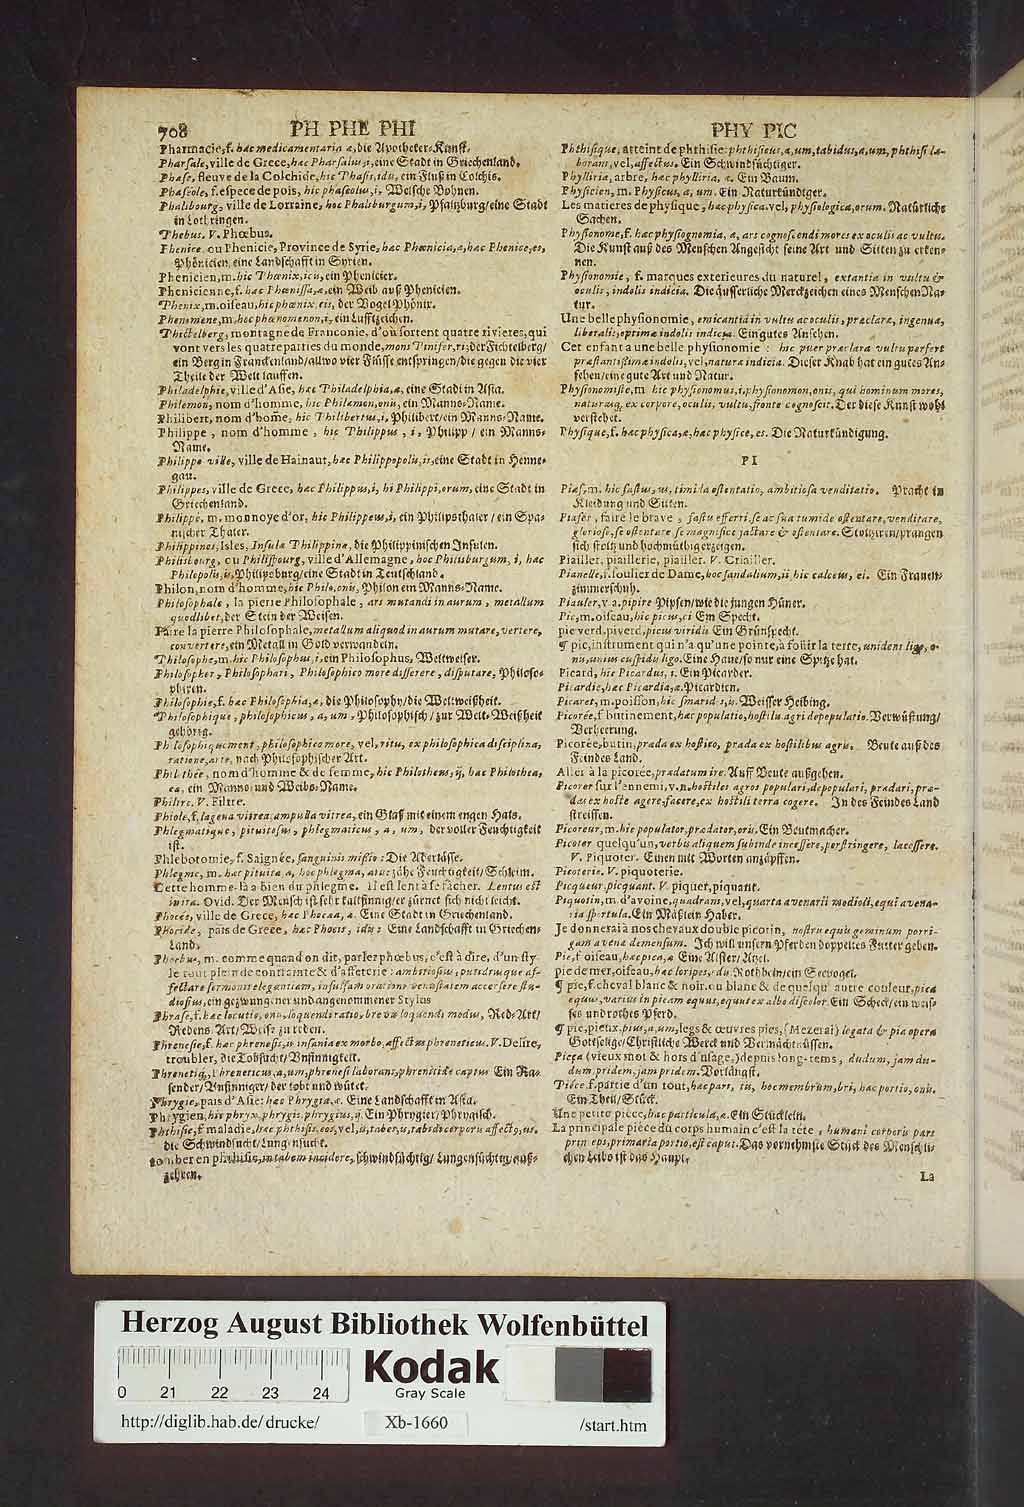 708 PH PHE PHI
Pharmacie, f. hæc medicamentaria æ, die Apothecker-Kunst.
Pharsale, ville de Grece, hæc Pharsalus, i, eine Stadt in Griechenland.
Phase, fleuve de la Colchide, hic Phasis, idis, ein Fluß in Colchis.
Phaseole, f. espece de pois, hic phaseolus, i, Welsche Bohnen.
Phalsbourg, ville de Lorraine, hoc Phalsburgum, i, Pfaltzburg / eine Stadt
in Lothringen.
Phebus. V. Phœbus.
Phenice, ou Phenicie, Province de Syrie, hæc Phœnicia, æ, hæc Phenice, es,
Phönicien, eine Landschafft in Syrien.
Phenicien, m. hic Phœnix, icis, ein Phenicier.
Phenicienne, f. hæc Phœnissa, æ, ein Weib auß Phenicien.
Phenix, m. oiseau, hic phœnix, cis, der Vogel Phönix.
Phenomene, m. hoc phœnomenon, i, ein Lufftzeichen.
Phichtelberg, montagne de Franconie, d'où sortent quatre rivieres, qui
vont vers les quatre parties du monde, mons Pinifer, ri; der Fichtelberg /
ein Berg in Franckenland / allwo vier Flüsse entspringen / die gegen die vier
Theile der Welt lauffen.
Philadelphie, ville d'Asie, hæc Philadelphia, æ, eine Stadt in Asia.
Philemon, nom d'homme, hic Philemon, onis, ein Manns-Name.
Philibert, nom d'homme, hic Philibertus, i, Philibert / ein Manns-Name.
Philippe, nom d'homme, hic Philippus, i, Philipp / ein Manns-
Name.
Philippe ville, ville de Hainaut, hæc Philippopolis, is, eine Stadt in Henne-
gau.
Philippes, ville de Grece, hæc Philippus, i, hi Philippi, orum, eine Stadt in
Griechenland.
Philippe, m. monnoye d'or, hic Philippeus, i, ein Philipsthaler / ein Spa-
nischer Thaler.
Philippines, Isles, Insulæ Philippinæ, die Philippinischen Insulen.
Philisbourg, ou Philipsbourg, ville d'Allemagne, hoc Philisburgum, i, hæc
Philopolis, is, Philipsburg / eine Stadt in Teutschland.
Philon, nom d'homme, hic Philo, onis, Philon ein Manns-Name.
Philosophale, la pierre Philosophale, ars mutandi in aurum, metallum
quodlibet, der Stein der Weisen.
Faire la pierre Philosophale, metallum aliquod in aurum mutare, vertere,
convertere, ein Metall in Gold verwandeln.
Philosophe, m. hic Philosophus, i, ein Philosophus, Weltweiser.
Philosopher, Philosophari, Philosophico more disserere, disputare, Philoso-
phiren.
Philosophie, f. hæc Philosophia, æ, die Philosophy / die Weltweißheit.
Philosophique, philosophicus, a, um, Philosophisch / zur Welt-Weißheit
gehörig.
Philosophiquement, philosophico more, vel, ritu, ex philosophica disciplina,
ratione, arte, nach Philosophischer Art.
Philothée, nom d'homme & de femme, hic Philotheus, ij, hæc Philothea,
eæ, ein Manns- und Weibs-Name.
Philtre. V. Filtre.
Phiole, f. lagena vitrea, ampulla vitrea, ein Glaß mit einem engen Hals.
Phlegmatique, pituitosus, phlegmaticus, a, um, der voller Feuchtigkeit
ist.
Phlebotomie, f. Saignée, sanguinis missio: Die Aderlässe.
Phlegme, m. hæc pituita æ, hoc phlegma, atis: zähe Feuchtigkeit / Schleim.
Cette homme-là a bien du phlegme. Il est lent à se fâcher. Lentus est
in ira. Ovid. Der Mensch ist sehr kaltsinnig / er zürnet sich nicht leicht.
Phocée, ville de Grece, hæc Phocæa, æ. Eine Stadt in Griechenland.
Phocide, païs de Grece, hæc Phocis, idis: Eine Landschafft in Griechen-
Land.
Phœbus, m. comme quand on dit, parler phœbus, c'est à dire, d'un sty-
le tout plein de contrainte & d'afferterie: ambitiosius, putidiusque af-
fectare sermonis elegantiam, insulsam orationi venustatem accersere stu-
diosius, ein gezwungener und angenommener Stylus
Phrase, f. hæc locutio, onis, loquendi ratio, brevis loquendi modus, Red-Art /
Redens-Art / Weise zu reden.
Phrenesie, f. hæc phrenesis, is insania ex morbo, affectus phreneticus. V. Delire,
troubler, die Tobsucht / Unsinnigkeit.
Phrenetiq, phreneticus, a, um, phrenesi laborans, phrenitide captus Ein Ra-
sender / Unsinniger / der tobt und wütet.
Phrygie, païs d'Asie: hæc Phrygia, æ. Eine Landschafft in Asia.
Phrygien, hic phryx, phrygis, phrygius, ij. Ein Phrygier / Phrygisch.
Phthisie, f. maladie, hæc phthisis, eos, vel, is, tabes, is, tabidi corporis affectus, us.
die Schwindsucht / Lungensucht.
tomber en phthisie, in tabem incidere, schwindsüchtig / Lungensüchtig / auß-
zehren.
PHY PIC
Phthisique, atteint de phthisie: phthisicus, a, um, tabidus, a, um, phthisi la-
borans, vel, affectus. Ein Schwindsüchtiger.
Phylliria, arbre, hæc phylliria, æ. Ein Baum.
Physicien, m. Physicus, a, um. Ein Naturkündiger.
Les matieres de physique, hæc physica. vel, physiologica, orum. Natürliche
Sachen.
Physionome, f. hæc physiognomia, æ, ars cognoscendi mores ex oculis ac vultu.
Die Kunst auß des Menschen Angesicht seine Art und Sitten zu erken-
nen.
Physionomie, f. marques exterieures du naturel, extantia in vultu &
oculis, indolis indicia. Die äusserliche Merckzeichen eines Menschen Na-
tur.
Une belle physionomie, emicantia in vultu ac oculis, præclaræ, ingenuæ,
liberalis, optimæ indolis indicia. Ein gutes Ansehen.
Cet enfant a une belle physionomie: hic puer præclara vultu perfert
præstantissimæ indolis, vel, naturæ indicia. Dieser Knab hat ein gutes An-
sehen / eine gute Art und Natur.
Physionomiste, m. hic physionomus, i, physionomon, onis, qui hominum mores,
naturasq; ex corpore, oculis, vultu, fronte cognoscit. Der diese Kunst wohl
verstehet.
Physique, f. hæc physica, æ, hæc physice, es. Die Naturkündigung.
PI
Piaf, m. hic fastus, us, timida ostentatio, ambitiosa venditatio. Pracht in
Kleidung und Sitten.
Piafer, faire le brave, fastu efferri, se ac sua tumide ostentare, venditare,
gloriosè, se ostentare se magnificè jactare & ostentare. Stoltziren / prangen
sich stoltz und hochmüthig erzeigen.
Piailler, piaillerie, piailler. V. Criailler.
Pianelle, f. soulier de Dame, hoc sandalium, ii hic calceus, ei. Ein Frauen-
zimmerschuh.
Piauler, v. a. pipire Pipsen / wie die jungen Hüner.
Pic, m. oiseau, hic picus, ci Ein Specht.
pic verd, piverd, picus viridis Ein Grünspecht.
¶ pic, instrument qui n'a qu'une pointe, à foüir la terre, unidens ligo, o-
nis, unius cuspidis ligo. Eine Haue / so nur eine Spitze hat.
Picard, hic Picardus, i. Ein Picarder.
Picardie, hæc Picardia, æ. Picardien.
Picaret, m. poisson, hic smaris, is. Weisser Heibing.
Picorée, f. butinement, hæc populatio, hostilis agri depopulatio. Verwüstung /
Verheerung.
Picorée, butin, præda ex hostico, præda ex hostilibus agris. Beute auß des
Feindes Land.
Aller à la picorée, prædatum ire. Auff Beute außgehen.
Picorer sur l'ennemi, v. n. hostiles agros populari, depopulari, prædari, præ-
das ex hoste agere, facere, ex hostili terra cogere. In des Feindes Land
streiffen.
Picoreur, m. hic populator, prædator, oris. Ein Beutmacher.
Picoter quelqu'un, verbis aliquem subinde incessere, perstringere, lacessere.
V. Piquoter. Einen mit Worten anzäpffen.
Picoterie. V. piquoterie.
Picqueur, picquant. V. piquer, piquant.
Picquotin, m. d'avoine, quadrans, vel, quarta avenarii modioli, equi avena-
ria sportula. Ein Mäßlein Haber.
Je donnerai à nos chevaux double picotin, nostris equis geminum porri-
gam avenæ demensum. Ich will unsern Pferden doppeltes Futter geben.
Pie, f. oiseau, hæc pica, æ Eine Alster / Atzel.
pie de mer, oiseau, hæc loripes, dis. Rothbein / ein Seevogel.
¶ pie, f. cheval blanc & noir, ou blanc & de quelqu' autre couleur, pica
equus, varius in picam equus, equus ex albo discolor. Ein Scheck / ein weis-
ses und rothes Pferd.
¶ pie, pieux, pius, a, um, legs & œuvres pies, (Mezerai) legata & pia opera
Gottselige / Christliche Werck und Vermächtnüssen.
Pieça (vieux mot & hors d'usage,) depuis long-tems, dudum, jam du-
dum. pridem, jam pridem. Vorlängst.
Piéce, f. partie d'un tout, hæc pars, tis, hoc membrum, bri, hæc portio, onis.
Ein Theil / Stück.
Une petite piéce, hæc particula, æ. Ein Stücklein.
La principale piéce du corps humain c'est la tête, humani corporis pars
princeps, primaria portio, est caput. Das vornehmste Stück des Menschli-
chen Leibs ist das Haupt.
La
Herzog August Bibliothek Wolfenbüttel
Kodak
Gray Scale
0 21 22 23 24
http://diglib.hab.de/drucke/ Xb-1660 /start.htm